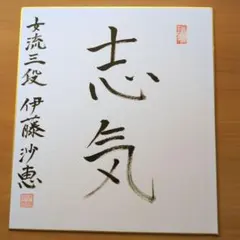 志気
女流三段 伊藤沙恵